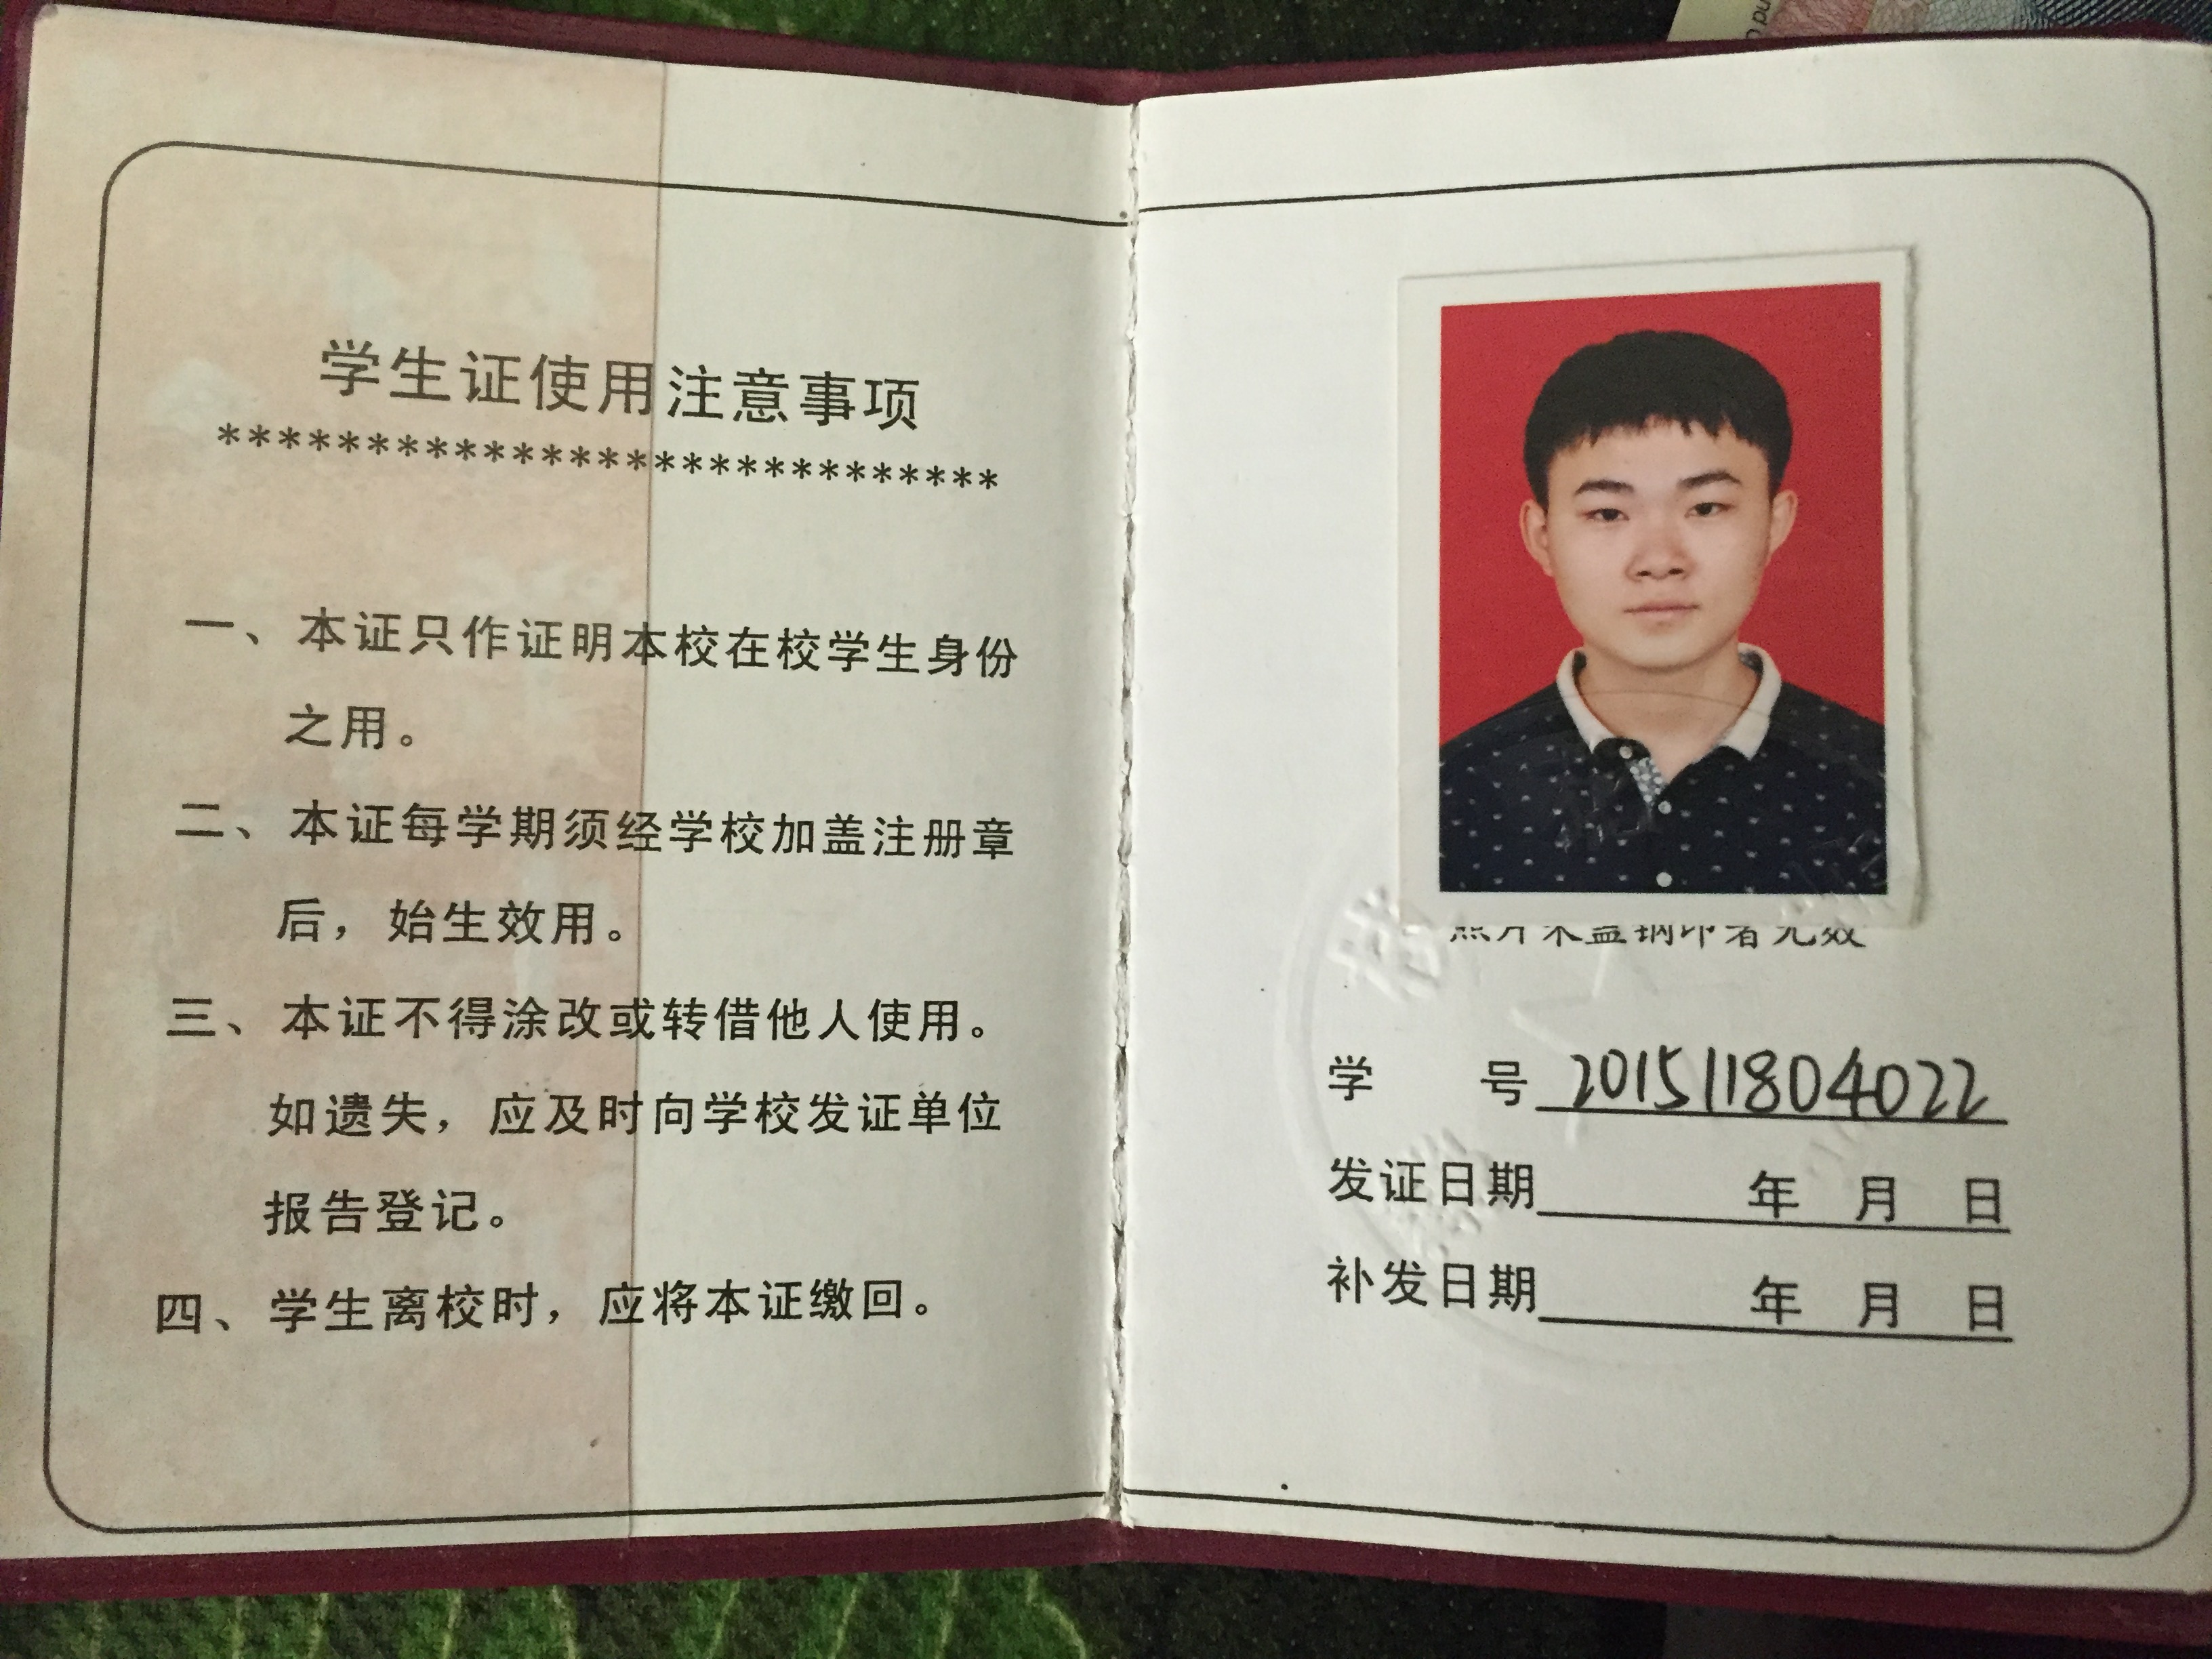 学生证使用注意事项
***************************
一、本证只作证明本校在校学生身份
之用。
二、本证每学期须经学校加盖注册章
后，始生效用。
三、本证不得涂改或转借他人使用。
如遗失，应及时向学校发证单位
报告登记。
四、学生离校时，应将本证缴回。
照片未盖钢印者无效
学 号 201511804022
发证日期 年 月 日
补发日期 年 月 日